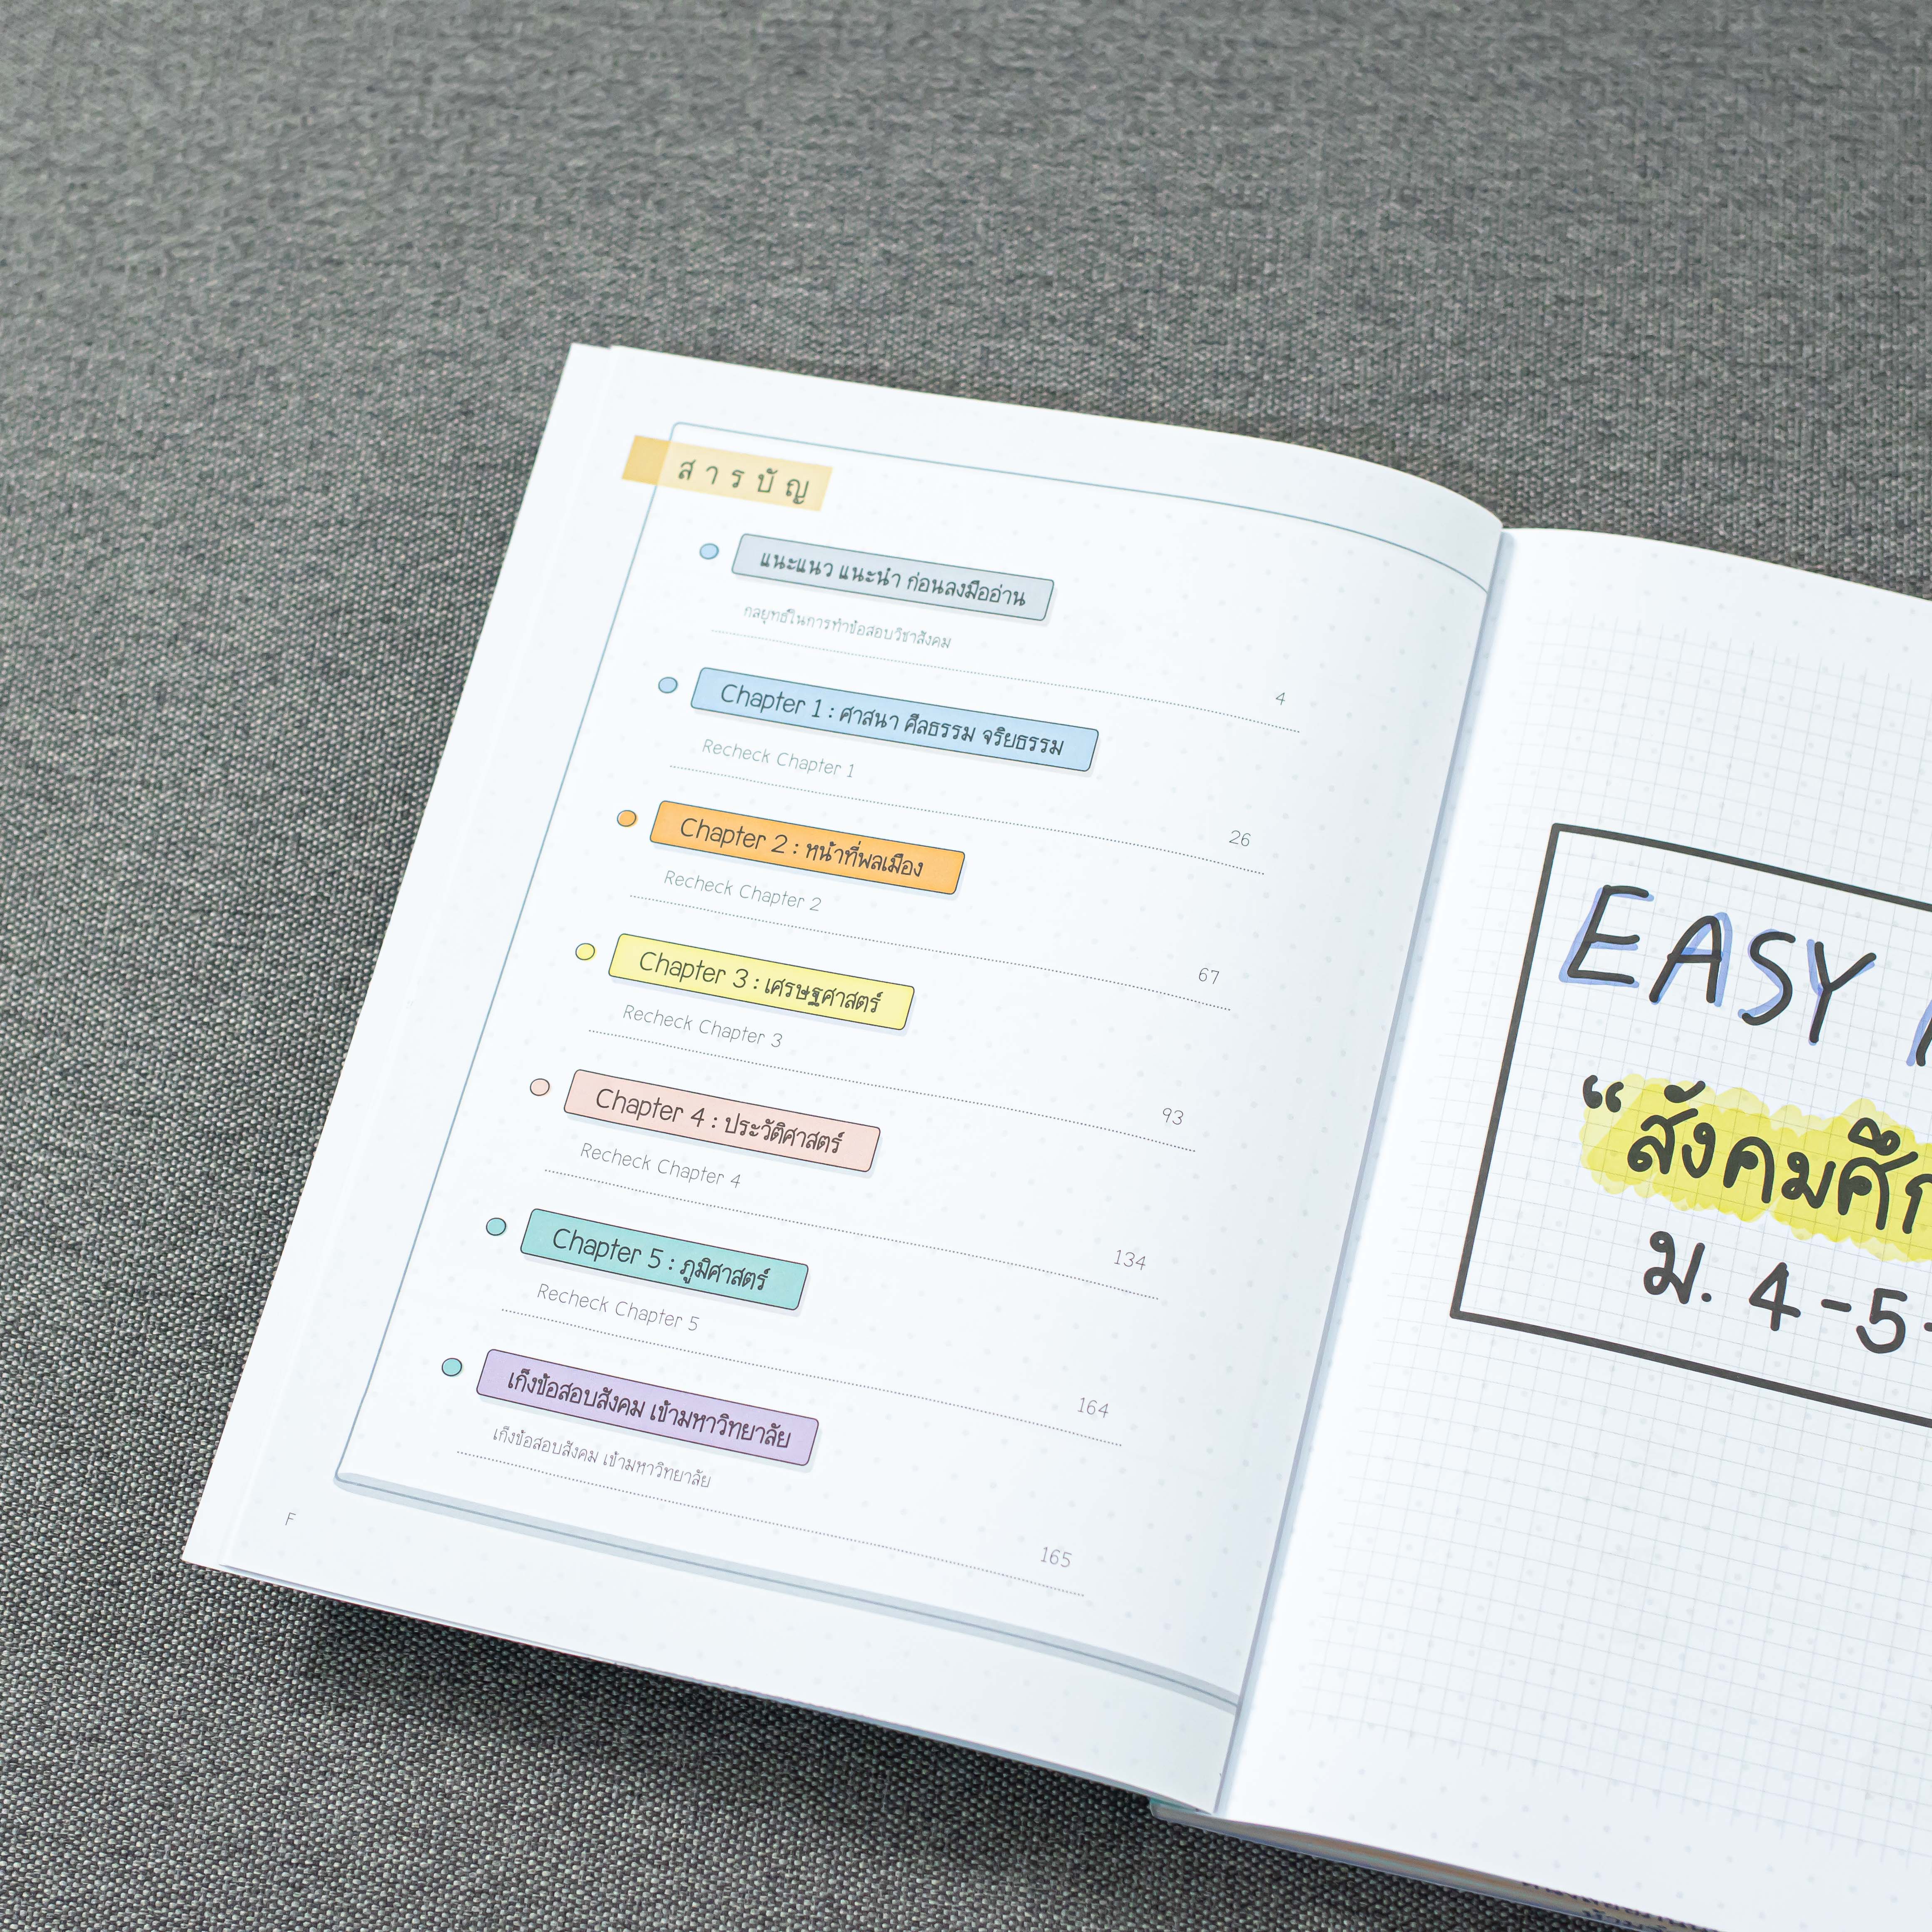 สารบัญ
แนะแนว แนะนำ ก่อนลงมืออ่าน
กลยุทธ์ในการทำข้อสอบวิชาสังคม
4
Chapter 1 : ศาสนา ศีลธรรม จริยธรรม
Recheck Chapter 1
26
Chapter 2 : หน้าที่พลเมือง
Recheck Chapter 2
67
Chapter 3 : เศรษฐศาสตร์
Recheck Chapter 3
93
Chapter 4 : ประวัติศาสตร์
Recheck Chapter 4
134
Chapter 5 : ภูมิศาสตร์
Recheck Chapter 5
164
เก็งข้อสอบสังคม เข้ามหาวิทยาลัย
เก็งข้อสอบสังคม เข้ามหาวิทยาลัย
165
F
EASY
“สังคมศึก
ม. 4-5-